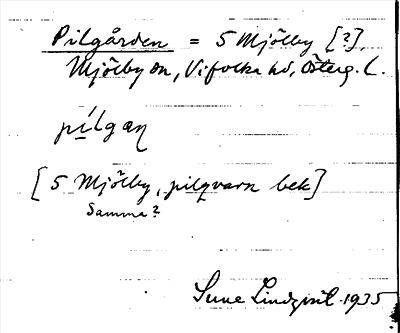 Pilgården = 5 Mjölby [?]
Mjölby sn, Vifolka hd, Österg. L.
pílgan
[5 Mjölby, pilqvarn bek]
Samma?
Sune Lindqvist 1935